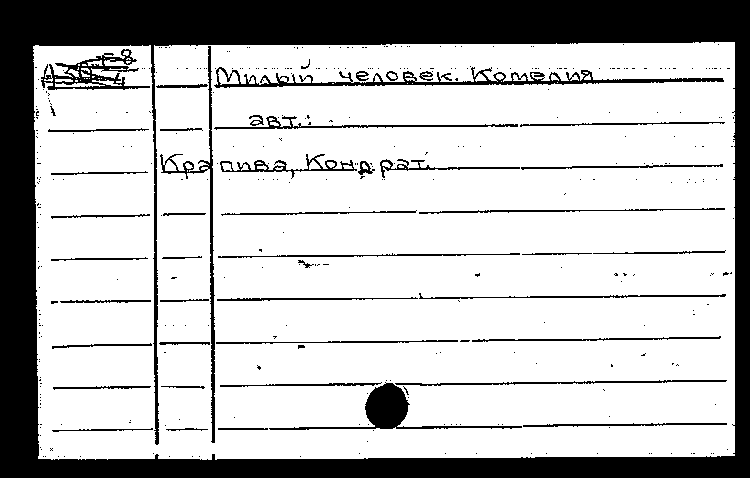 Милый человек. Комедия
авт.:
Крапива, Кондрат.